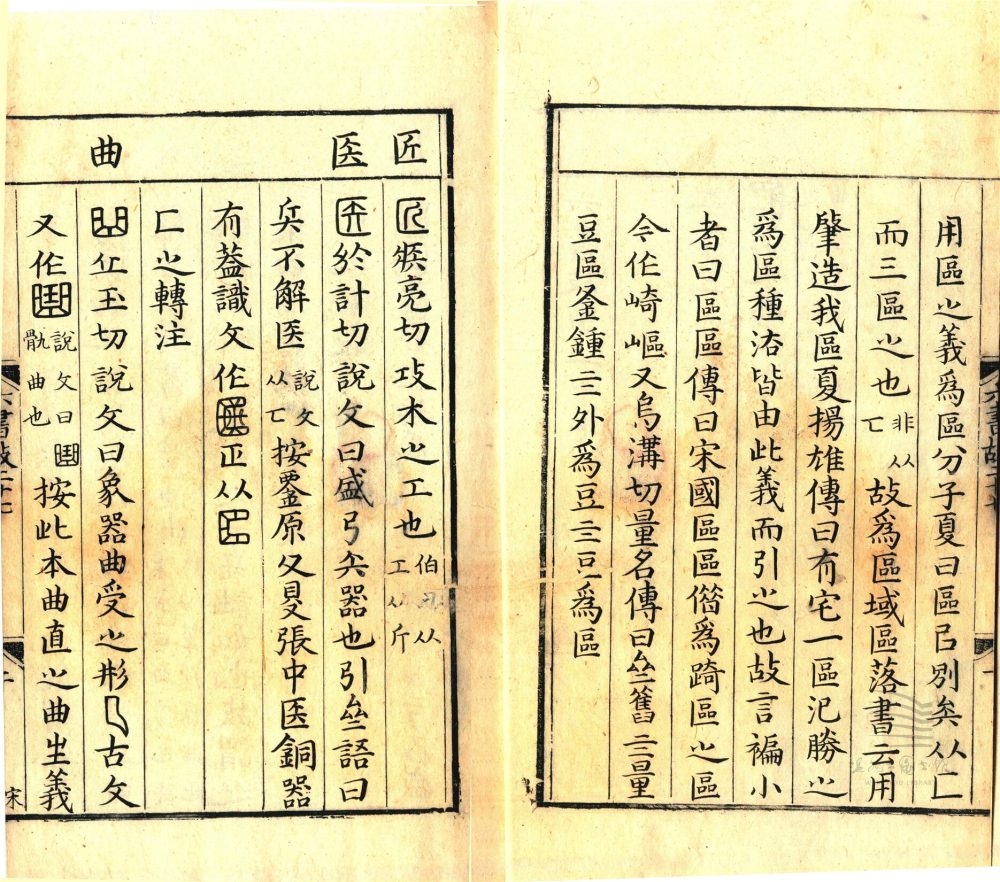 用區㞢義爲區分子夏曰區㠯別矣从匸
而三區㞢也非从匸故爲區域區落書云用
肇造我區夏揚雄傳曰有宅一區氾勝㞢
爲區種法皆由此義而引㞢也故言褊小
者曰區區傳曰宋國區區偕爲踦區㞢區
今作崎嶇又烏溝切量名傳曰亝舊三量
豆區釜鍾亖升爲豆亖豆爲區
匠
匠疾亮切攻木㞢工也伯曰从工从斤
医
医於計切說文曰盛弓矢器也引亝語曰
兵不解医說文从匸按鄭原父𠭁張中医銅器
有蓋識文作正从
匚㞢轉注
曲
丘玉切說文曰象器曲受㞢形古文
又作說文曰骫曲也按此本曲直㞢曲生義
六書故二十七
宋